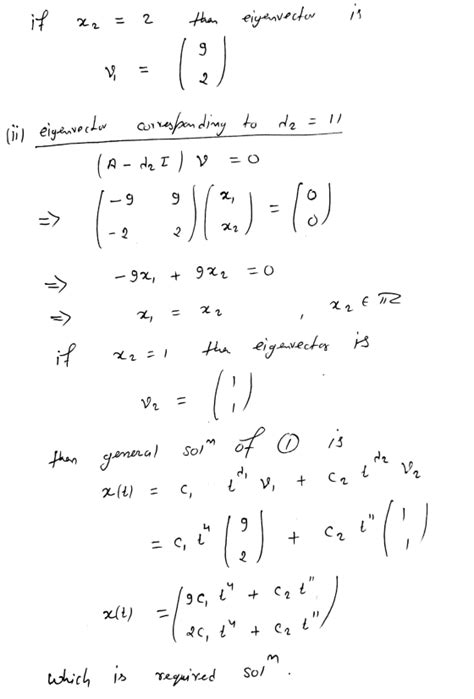 if x₂ = 2 then eigenvector is
v₁ = (9
2)
(ii) eigenvector corresponding to λ₂ = 11
(A - λ₂ I) v = 0
=> (-9 9
-2 2) (x₁
x₂) = (0
0)
=> -9x₁ + 9x₂ = 0
=> x₁ = x₂ , x₂ ∈ ℝ
if x₂ = 1 the eigenvector is
v₂ = (1
1)
then general solⁿ of ① is
x(t) = c₁ t^λ₁ v₁ + c₂ t^λ₂ v₂
= c₁ t⁴ (9
2) + c₂ t¹¹ (1
1)
x(t) = (9c₁ t⁴ + c₂ t¹¹
2c₁ t⁴ + c₂ t¹¹)
which is required solⁿ.